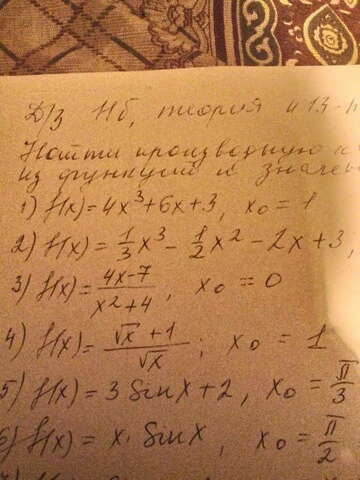 Д/з Нб, теория и 13-
Найти производную к
из функций и значе
1) f(x)=4x³+6x+3, x₀=1
2) f(x)=1/3x³-1/2x²-2x+3,
3) f(x)=4x-7/x²+4, x₀=0
4) f(x)=√x+1/√x; x₀=1
5) f(x)=3 sinx+2, x₀=π/3
6) f(x)=x·sinx, x₀=π/2